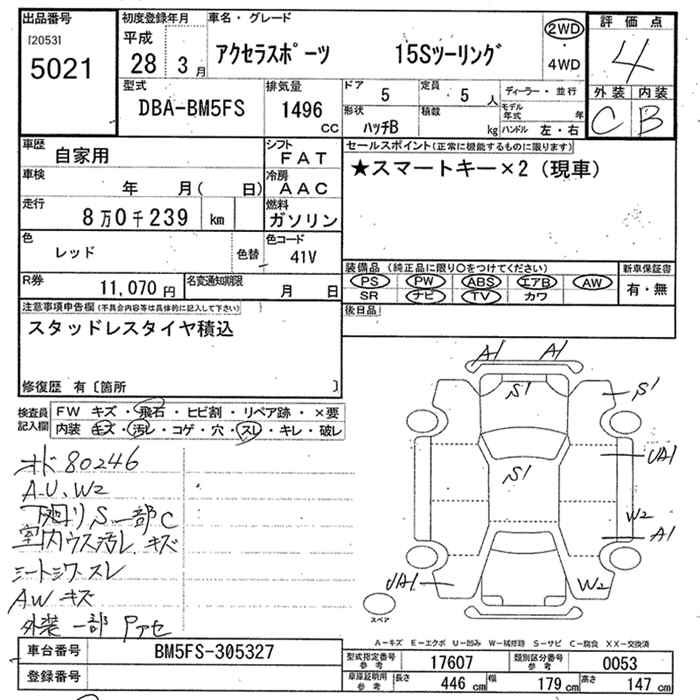 出品番号 初度登録年月 車名・グレード 評価点
[2053] 平成 アクセラスポーツ 15Sツーリング 2WD 4
5021 28 3月 4WD 外装 内装
型式 排気量 ドア 5 定員 5人 ディーラー・並行 C B
DBA-BM5FS 1496cc 形状 ハッチB 積数 kg モデル年式 年
ハンドル 左・右
車歴 自家用 シフト FAT セールスポイント(正常に機能するものに限ります)
車検 年 月( 日) 冷房 AAC ★スマートキー×2(現車)
走行 8万0千239 km 燃料 ガソリン
色 レッド 色替 色コード 41V
R券 11,070円 名変通知期限 月 日
装備品(純正品に限り○をつけてください) 新車保証書
PS PW ABS エアB AW 有・無
SR ナビ TV カワ
後日品
注意事項申告欄(不具合内容等は具体的に記入して下さい)
スタッドレスタイヤ積込
修復歴 有〔箇所 〕
検査員記入欄 FW キズ・飛石・ヒビ割・リペア跡・×要
内装 キズ・汚レ・コゲ・穴・スレ・キレ・破レ
オド80246
A.U.W2
下廻りS 一部C
室内ウス汚レ.キズ
シートシワ.スレ
AWキズ
外装 一部 Pアセ
A1 A1
S1 S1
UA1
S1
W2
A1
UA1 W2
スペア
A-キズ E-エクボ U-凹み W-補修跡 S-サビ C-腐食 XX-交換済
車台番号 BM5FS-305327 型式指定番号参考 17607 類別区分番号参考 0053
登録番号 車庫証明用参考 長さ 446cm 幅 179cm 高さ 147cm